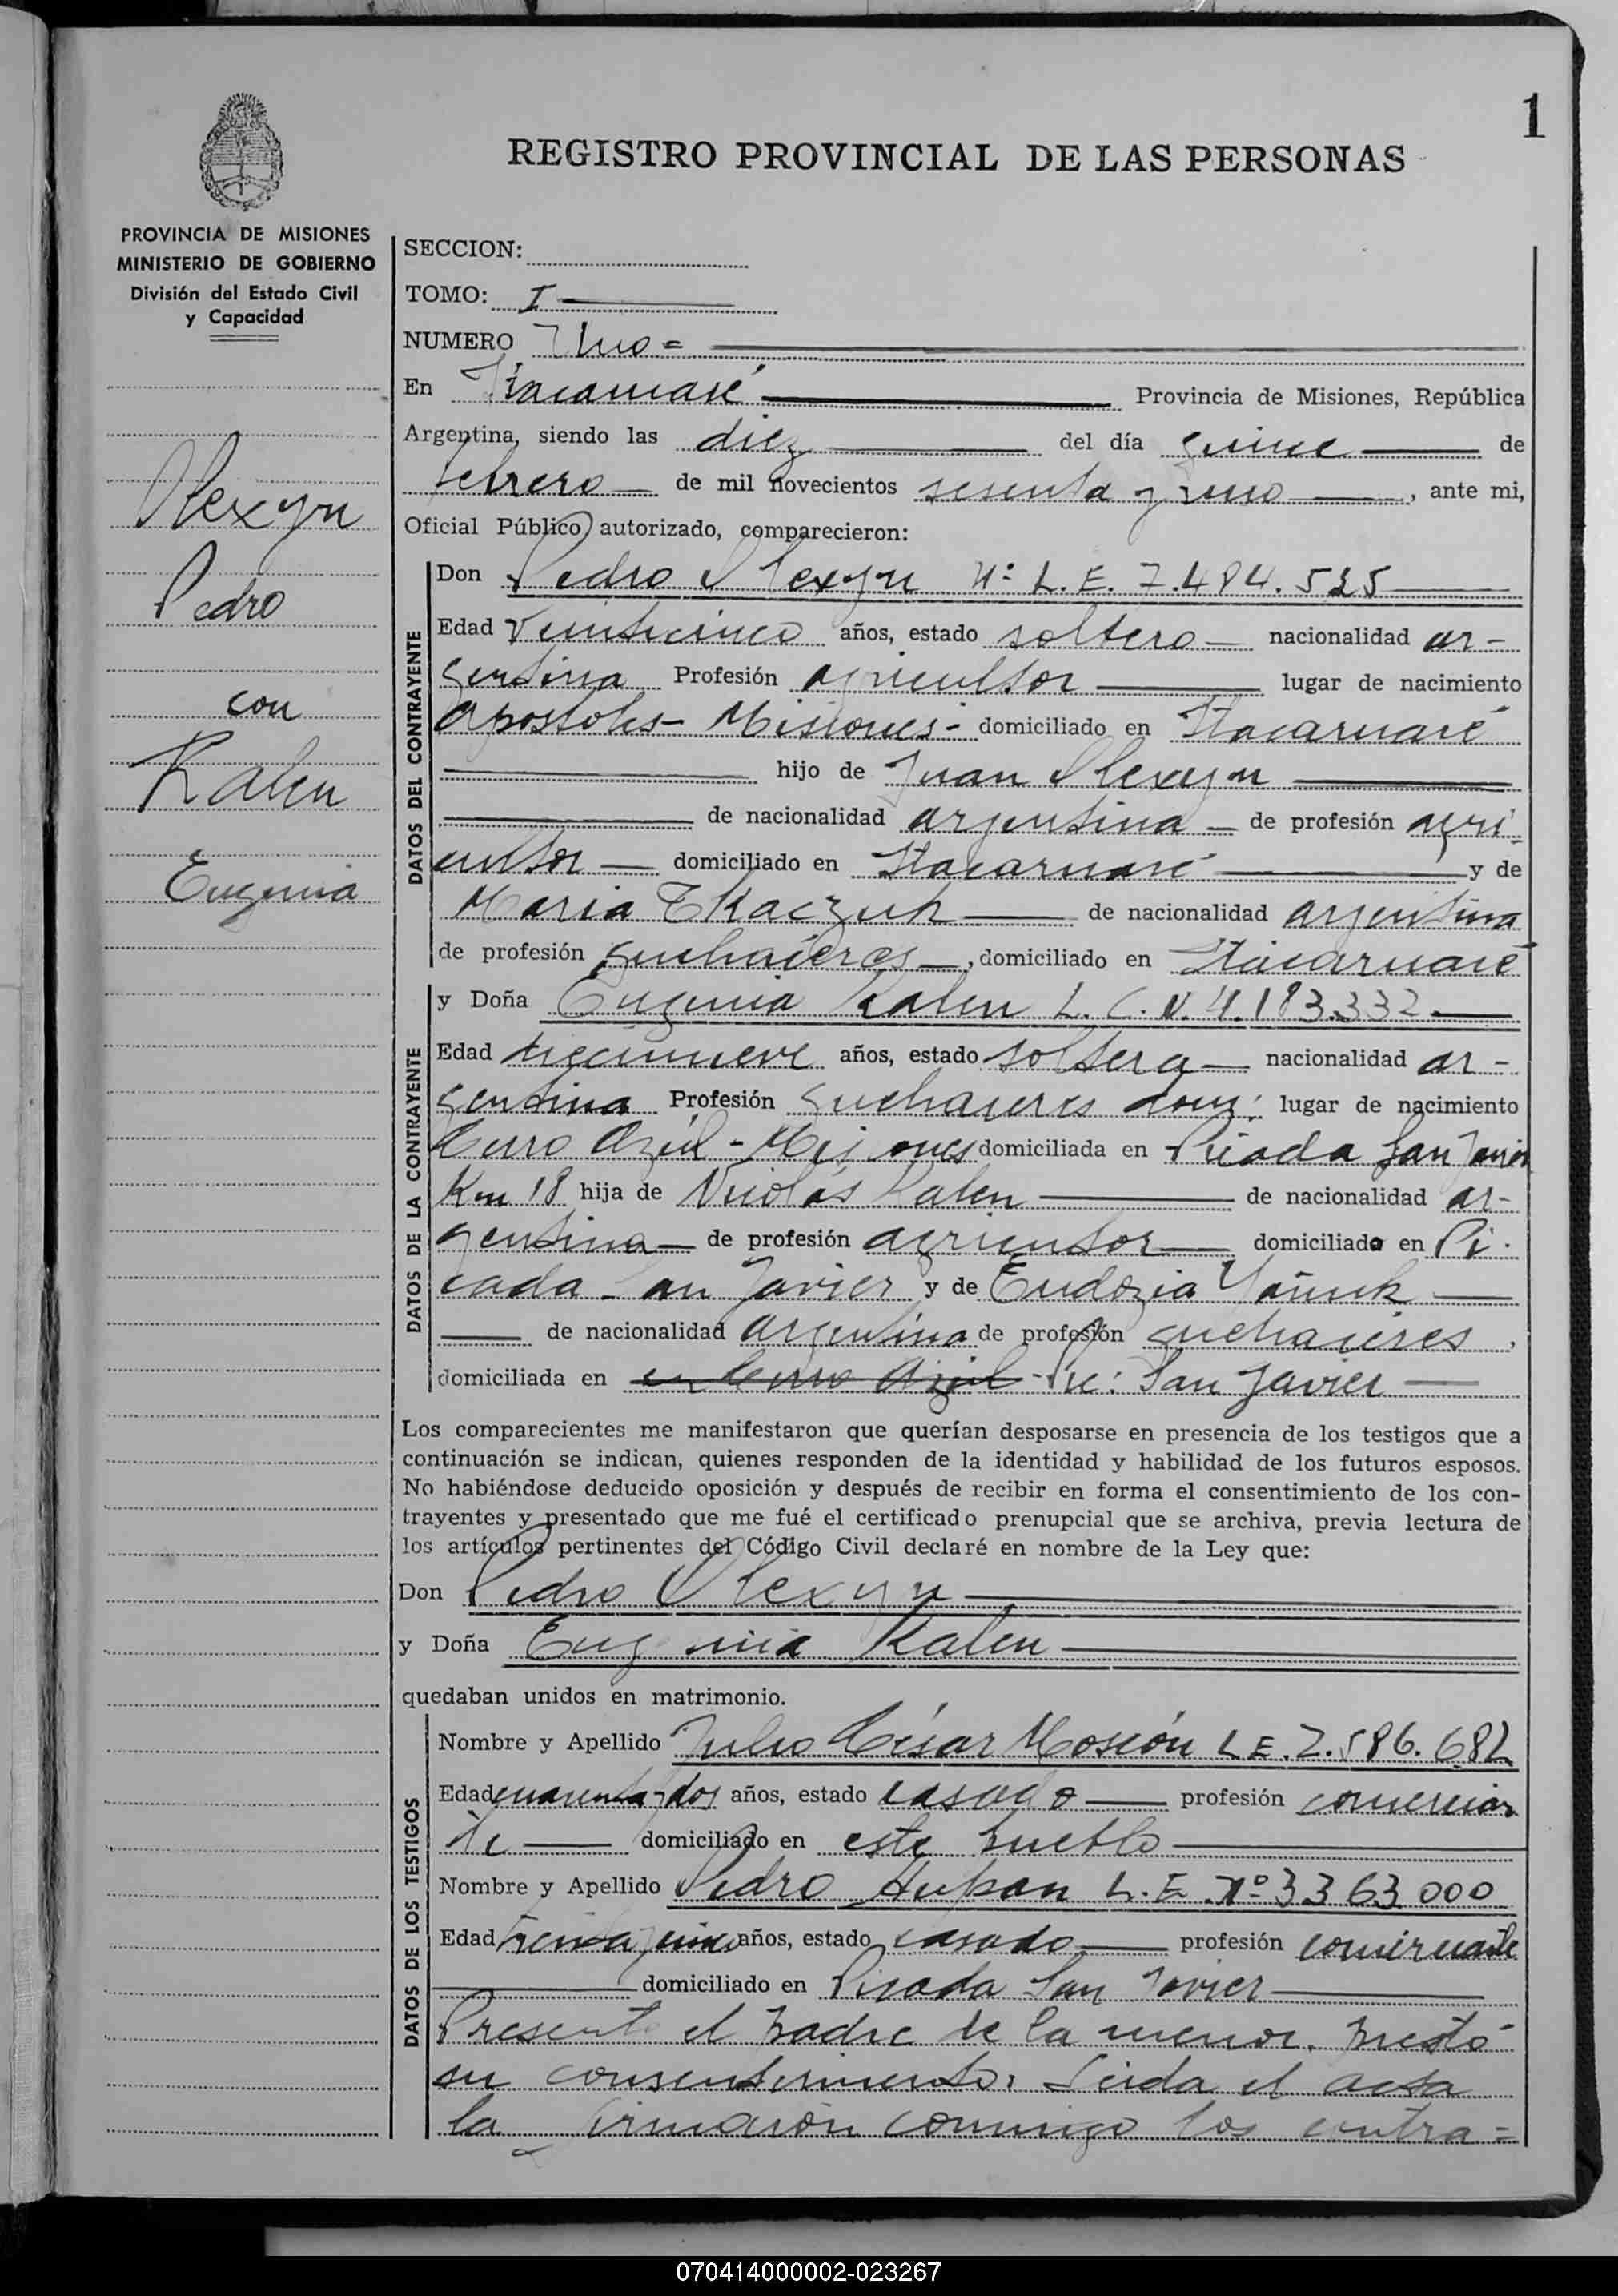 1
REGISTRO PROVINCIAL DE LAS PERSONAS
PROVINCIA DE MISIONES
MINISTERIO DE GOBIERNO
División del Estado Civil
y Capacidad
Olexyn
Pedro
con
Kalen
Eugenia
SECCION:
TOMO: I
NUMERO Uno =
En Itacaruaré Provincia de Misiones, República
Argentina, siendo las diez del día quince de
febrero de mil novecientos sesenta y uno, ante mi,
Oficial Público autorizado, comparecieron:
DATOS DEL CONTRAYENTE
Don Pedro Olexyn Nº L.E. 7.484.525
Edad Veinticinco años, estado soltero nacionalidad ar-
gentina Profesión agricultor lugar de nacimiento
Apostoles - Misiones - domiciliado en Itacaruaré
hijo de Juan Olexyn
de nacionalidad argentina de profesión agri-
cultor domiciliado en Itacaruaré y de
Maria Tkaczuk de nacionalidad argentina
de profesión quehaceres, domiciliado en Itacaruaré
DATOS DE LA CONTRAYENTE
y Doña Eugenia Kalen L. C. N. 4.183.332
Edad diecinueve años, estado soltera nacionalidad ar-
gentina Profesión quehaceres dom: lugar de nacimiento
Cerro Azúl - Misiones domiciliada en Picada San Javier
Km 18 hija de Nicolás Kalen de nacionalidad ar-
gentina de profesión agricultor domiciliado en Pi-
cada San Javier y de Eudozia
de nacionalidad argentina de profesión quehaceres,
domiciliada en en Cerro Azúl Pic: San Javier
Los comparecientes me manifestaron que querían desposarse en presencia de los testigos que a
continuación se indican, quienes responden de la identidad y habilidad de los futuros esposos.
No habiéndose deducido oposición y después de recibir en forma el consentimiento de los con-
trayentes y presentado que me fué el certificado prenupcial que se archiva, previa lectura de
los artículos pertinentes del Código Civil declaré en nombre de la Ley que:
Don Pedro Olexyn
y Doña Eugenia Kalen
quedaban unidos en matrimonio.
DATOS DE LOS TESTIGOS
Nombre y Apellido Julio César L E. 2.586.682
Edad cuarenta y dos años, estado casado profesión comercian
te domiciliado en este pueblo
Nombre y Apellido Pedro L. E. Nº 3363000
Edad treinta y cinco años, estado casado profesión comerciante
domiciliado en Picada San Javier
Presente el padre de la menor. prestó
su consentimiento. Leida el acta
la firmarón conmigo los contra=
070414000002-023267